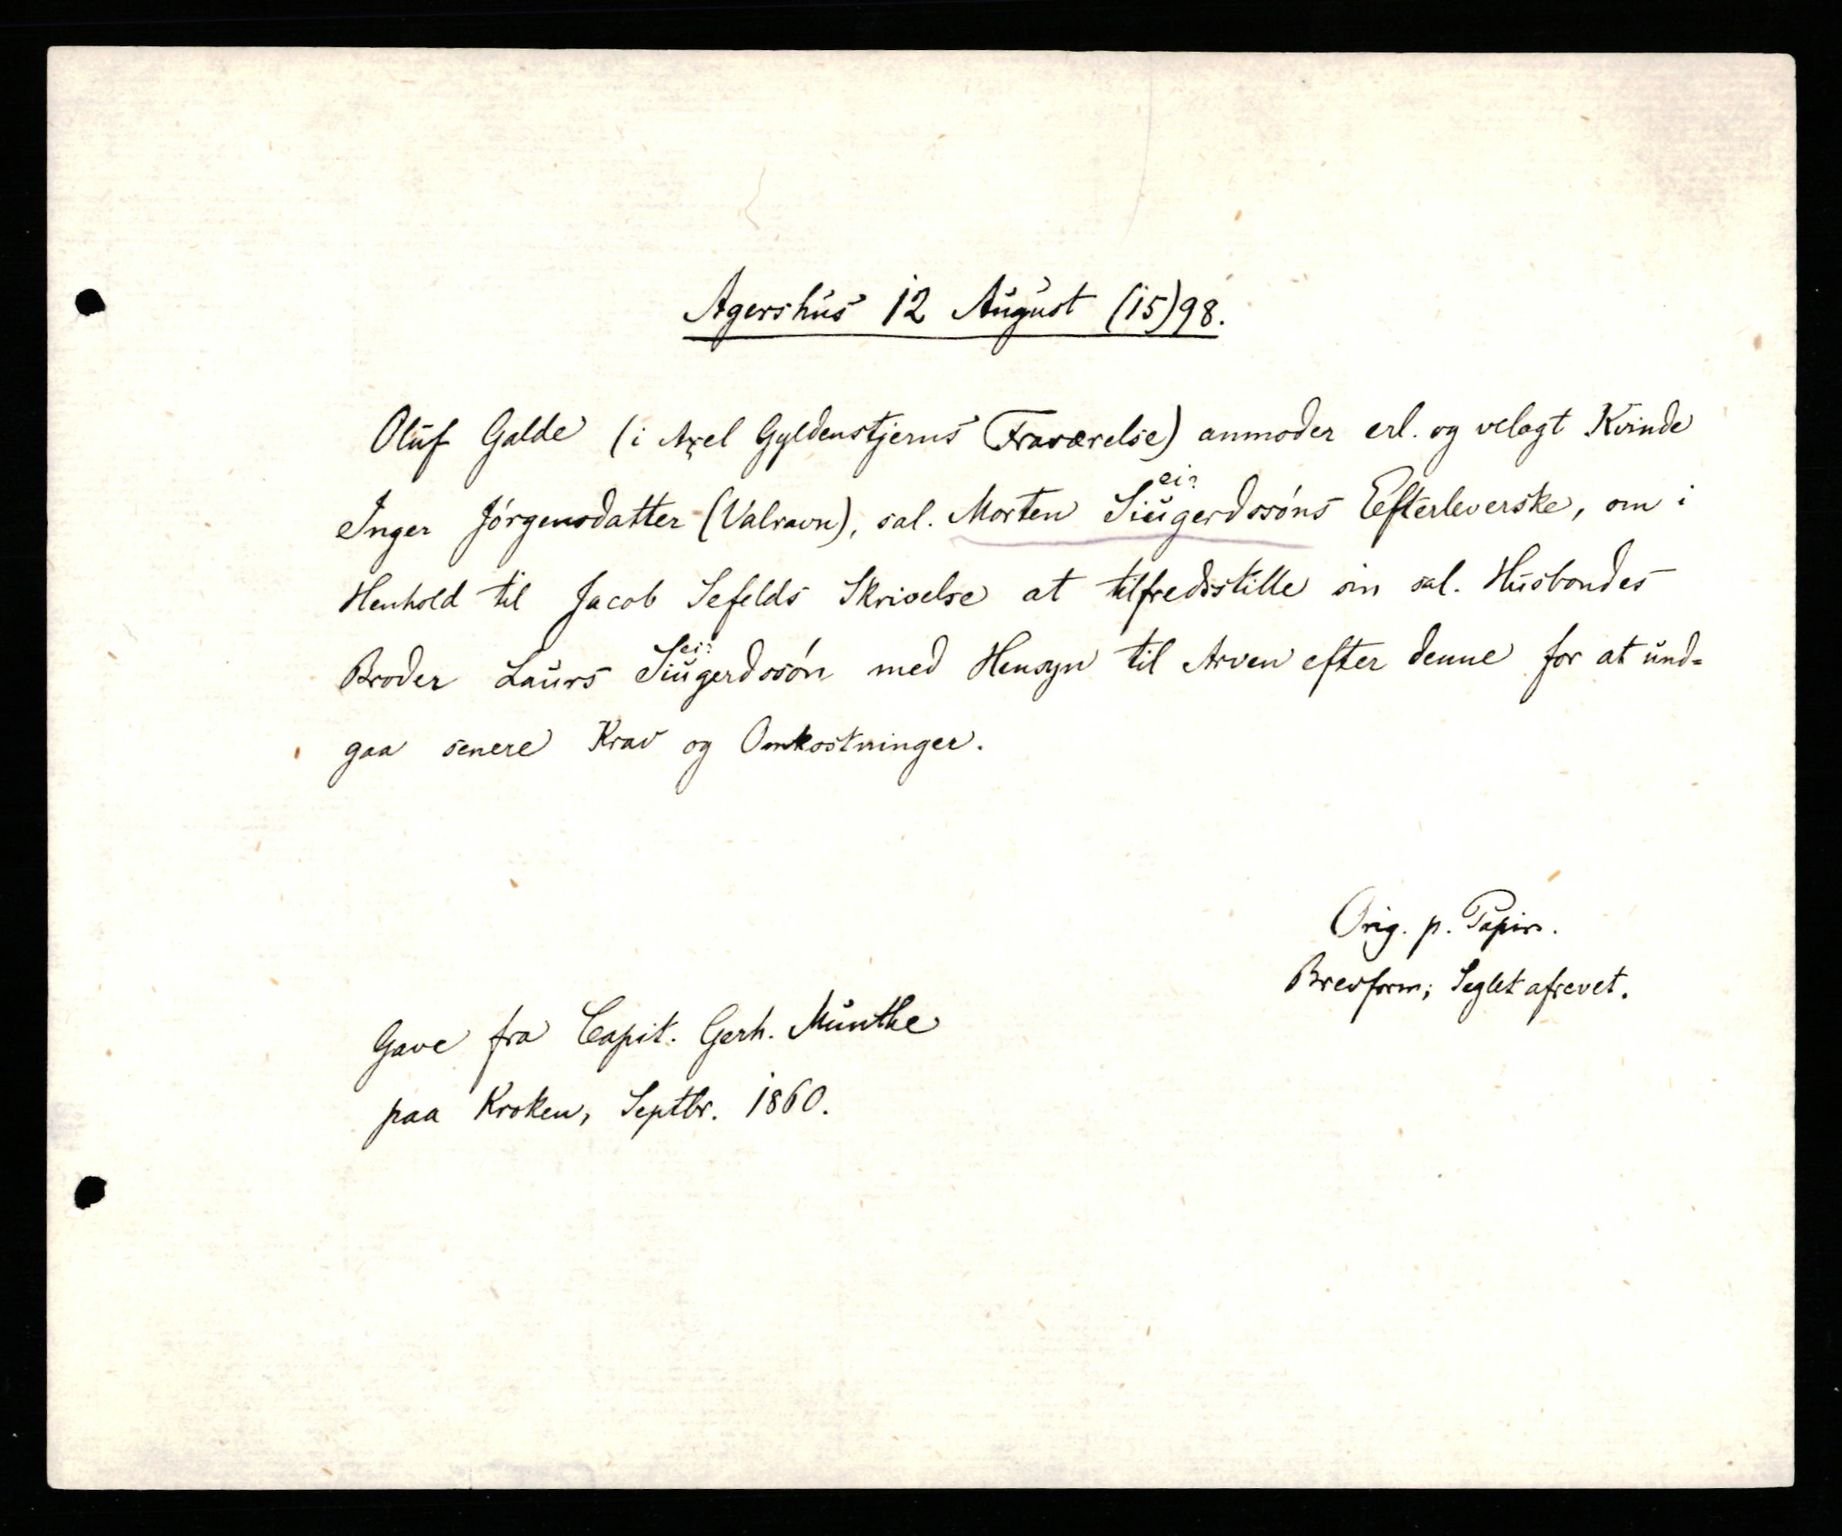 Agershus 12 August (15)98.
Oluf Galde (i Axel Gyldenstjerns Fraværelse) anmoder erl. og velagt Kvinde
ei?
Inger Jórgensdatter (Valravn), sal. Morten Siugerdssóns Efterleverske, om i
Henhold til Jacob Sefelds Skrivelse at tilfredsstille sin sal. Husbondes
ei?
Broder Laurs Siugerdssón med Hensyn til Arven efter denne for at und=
gaa senere Krav og Omkostninger.
Orig. p. Papir.
Brevform; Seglet afrevet.
Gave fra Capit. Gerh. Munthe
paa Kroken, Septbr. 1860.